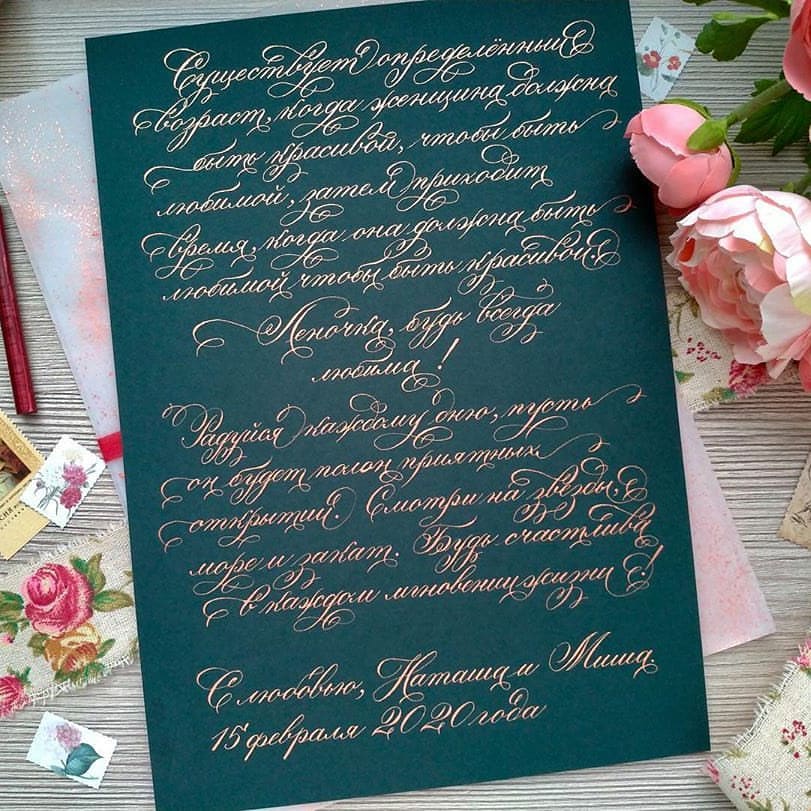 Существует определённый
возраст, когда женщина должна
быть красивой, чтобы быть
любимой, затем приходит
время, когда она должна быть
любимой чтобы быть красивой.
Леночка, будь всегда
любима!
Радуйся каждому дню, пусть
он будет полон приятных
открытий. Смотри на звёзды,
море и закат. Будь счастлива
в каждом мгновении жизни!
С любовью, Наташа и Миша
15 февраля 2020 года